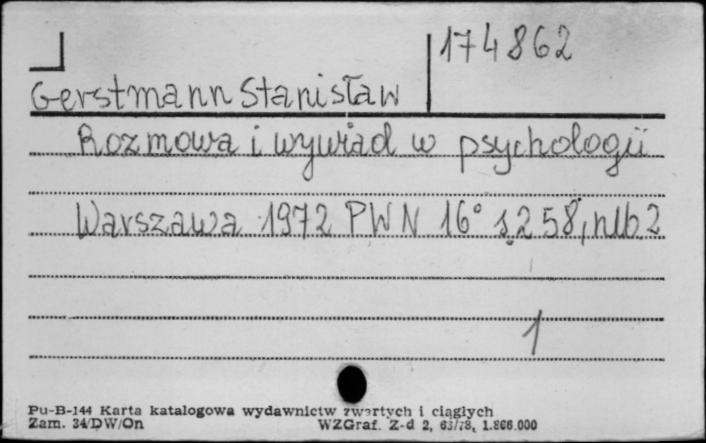 174862
Gerstmann Stanisław
Rozmowa i wywiad w psychologii
Warszawa 1972 PWN 16° s. 258, nlb. 2
1
Pu-B-144 Karta katalogowa wydawnictw zwartych i ciągłych
Zam. 34/DW/On WZGraf. Z-d 2, 63/78, 1.866.000